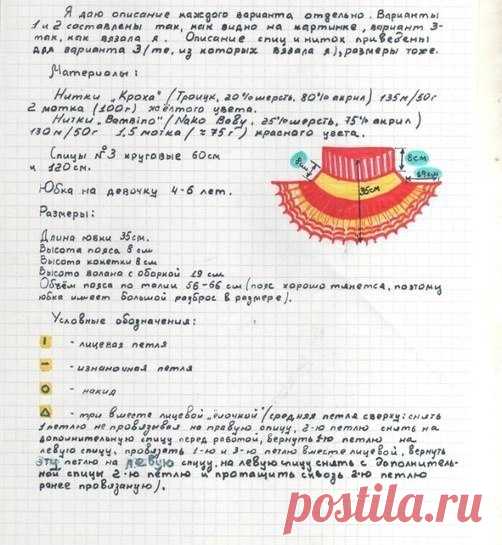 Я даю описание каждого варианта отдельно. Варианты
1 и 2 составлены так, как видно на картинке, вариант 3-
так, как вязала я. Описание спиц и ниток приведены
для варианта 3 /те, из которых вязала я), размеры тоже.
Материалы:
Нитки „Кроха" /Троицк, 20% шерсть, 80% акрил) 135м/50г
2 мотка (100г) жёлтого цвета.
Нитки „Bambino" /Nako Baby, 25% шерсть, 75% акрил)
130м/50г 1,5 мотка (≈75г) красного цвета.
Спицы №3 круговые 60см
и 120см.
8см
8см
35см
19см
Юбка на девочку 4-6 лет.
Размеры:
Длина юбки 35см.
Высота пояса 8см
Высота кокетки 8см
Высота волана с оборкой 19 см
Объём пояса по талии 56-66 см (пояс хорошо тянется, поэтому
юбка имеет большой разброс в размере).
Условные обозначения:
- лицевая петля
- изнаночная петля
- накид
- три вместе лицевой „ёлочкой" /средняя петля сверху: снять
1 петлю не провязывая на правую спицу, 2-ю петлю снять на
дополнительную спицу перед работой, вернуть 1-ю петлю на
левую спицу, провязать 1-ю и 3-ю петлю вместе лицевой, вернуть
эту петлю на левую спицу, на левую спицу снять с дополнитель-
ной спицы 2-ю петлю и протащить сквозь 2-ю петлю
ранее провязаную).
postila.ru